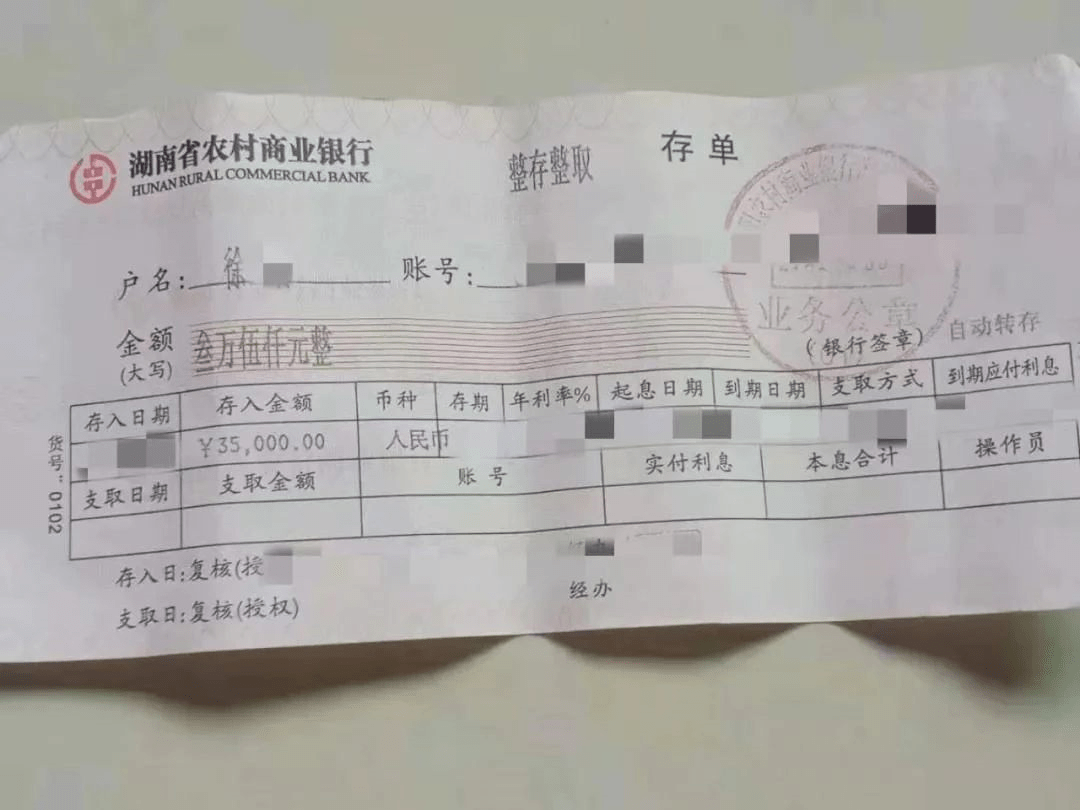 湖南省农村商业银行
HUNAN RURAL COMMERCIAL BANK
整存整取
存单
农村商业银行
业务公章
户名: 徐
账号:
金额 叁万伍仟元整
(大写)
(银行签章)
自动转存
存入日期 存入金额 币种 存期 年利率% 起息日期 到期日期 支取方式 到期应付利息
¥35,000.00 人民币
支取日期 支取金额 账号 实付利息 本息合计 操作员
货号"0102
存入日:复核(授
经办
支取日:复核(授权)